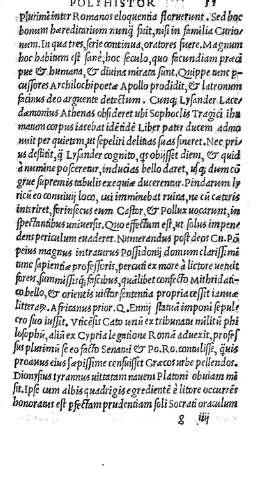 POLYHISTOR
plurimi inter Romanos eloquentia floruerunt. Sed hoc
bonum hæreditarium nunquã fuit, nisi in familia Curio-
num. In qua tres, serie continua, oratores fuere. Magnum
hoc habitum est sanè, hoc seculo, quo facundiam præci
puè & humana, & diuina mirata sunt. Quippe tunc per
cussores Archilochi poetæ Apollo prodidit, & latronum
facinus deo arguente detectum. Cunq; Lysander Lace-
dæmonius Athenas obsideret ubi Sophoclis Tragici ihu
matum corpus iacebat idẽtidẽ Liber pater ducem admo
nuit per quietem, ut sepeliri delitias suas sineret. Nec pri
us destitit, q̃ Lysander cognito, qs obijsset diem, & quid
à numine posceretur, inducias bello daret, usq; dum cõ
gruæ supremis tabulis exequiæ ducerentur. Pindarum ly
ricũ eo conuiuij loco, cui imminebat ruina, ne cũ cæteris
interiret, forinsecus eum Castor, & Pollux uocarunt, in
spectantibus uniuersis. Quo effectum est, ut solus impen
dens periculum euaderet. Numerandus post deos Cn. Põ
peius magnus intraturus Possidonij domum clarissimi
tunc sapientiæ professoris, percuti ex more à lictore uetuit
fores, summissisq; fascibus, quãlibet confecto Mithridati-
co bello, & orientis uictor sententia propria cessit ianuæ
literarum. Africanus prior. Q. Ennij statuã imponi sepul-
cro suo iussit. Vticẽsis Cato unũ ex tribunatu militũ phi
losophũ, aliũ ex Cypria legatione Romã aduexit, profes
sus plurimũ se eo facto Senatui & Po. Ro. contulisse, quis
proauus eius sæpissime censuisset Græcos urbe pellendos.
Dionysius tyrannus uittatam nauem Platoni obuiam mi
sit. Ipse cum albis quadrigis egrediẽtẽ è litore occurrẽs
honoratus est perfectam prudentiam soli Socrati oraculum
g iiij